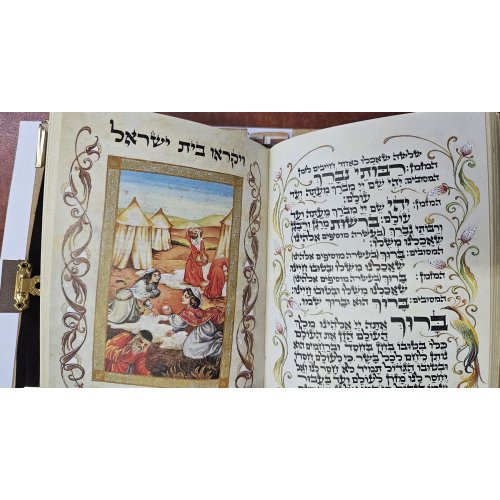 ויקראו בית ישראל
שלשה שאכלו כאחד חייבים לזמן
המזמן: רבותי נברך
המסובים: יהי שם יי מברך מעתה ועד
עולם:
המזמן: יהי שם יי מברך מעתה ועד
עולם: ברשות
רבותי נברך (בעשרה מוסיפים אלהינו)
שאכלנו משלו:
המסובים: ברוך (בעשרה אלהינו)
שאכלנו משלו ובטובו חיינו
המזמן: ברוך (בעשרה אלהינו)
שאכלנו משלו ובטובו חיינו:
המסובים: ברוך הוא וברוך שמו.
ברוך אתה יי אלהינו מלך
העולם הזן את העולם
כלו בטובו בחן בחסד וברחמים הוא
נותן לחם לכל בשר כי לעולם חסדו
ובטובו הגדול תמיד לא חסר לנו
ואל יחסר לנו מזון לעולם ועד בעבור